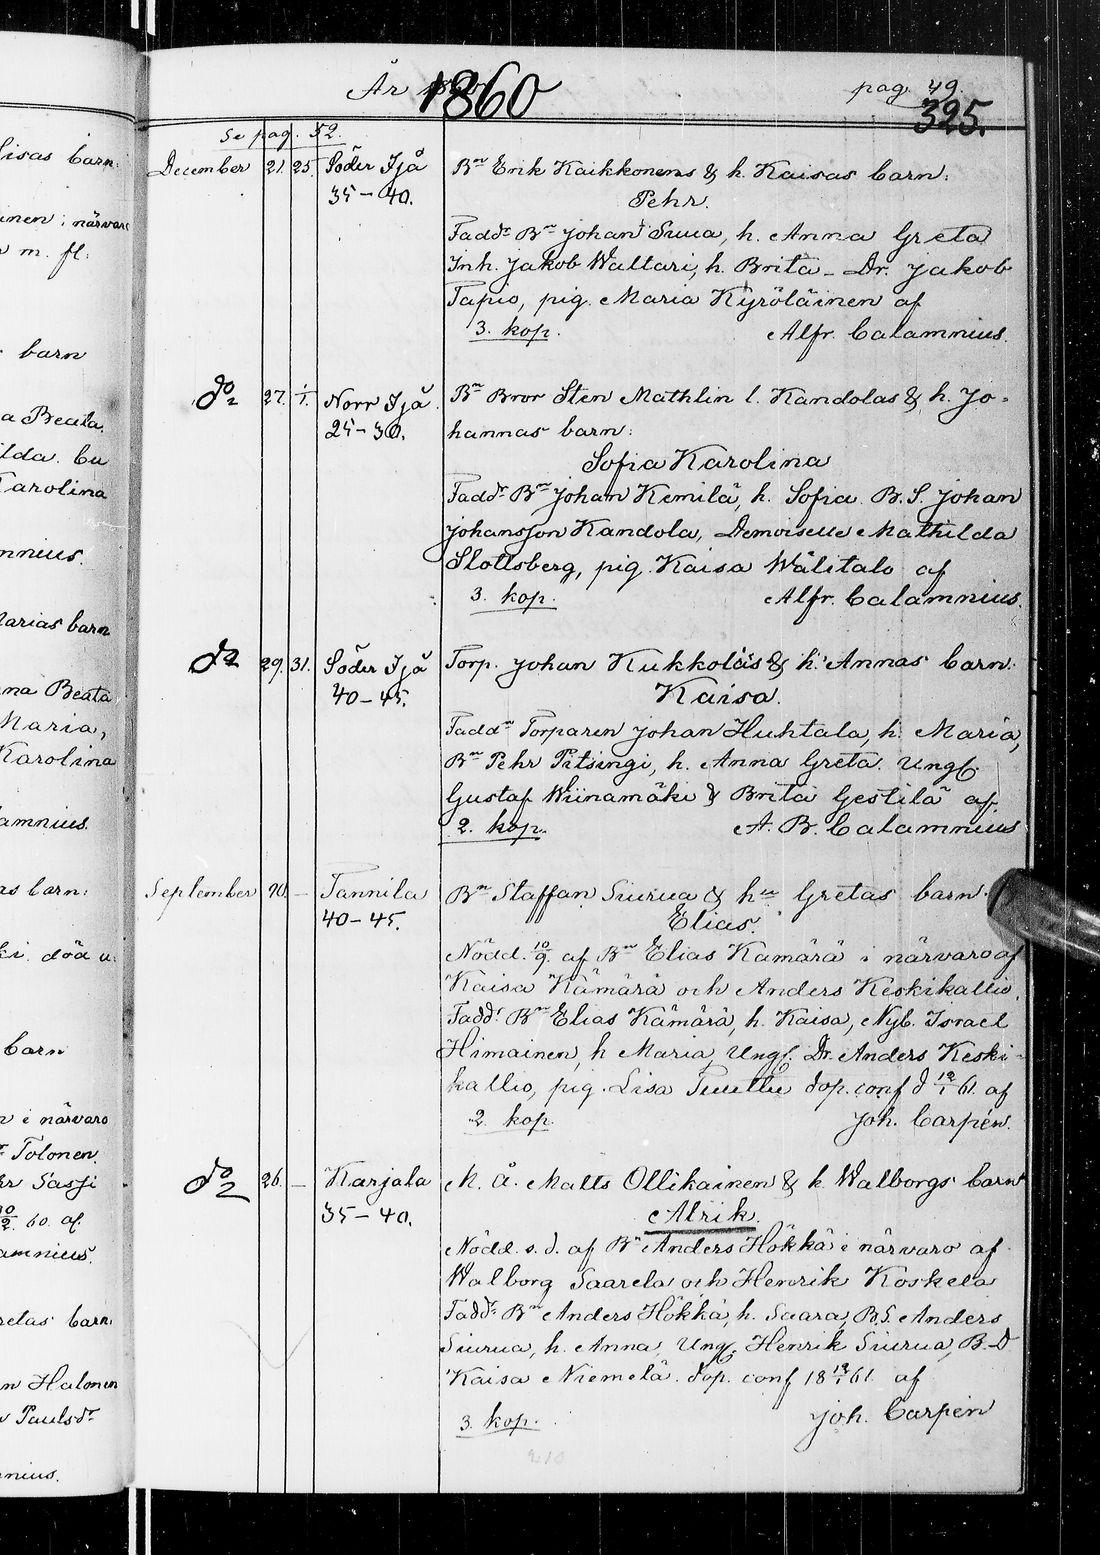 År 1860
pag. 49.
325.
Se pag. 52.
December 21. 25. Söder Ijå
35-40.
Bn Erik Kaikkonens & h. Kaisas barn:
Pehr.
Faddr Bn Johan Suua, h. Anna Greta
Inh. Jakob Waltari, h. Brita - Dr. Jakob
Tapio, pig. Maria Kyröläinen af
3. kop.
Alfr. Calamnius.
do 27. 1/1. Norr Ijå.
25-30.
Bn Bror Sten Mathlin l. Kandolas & h. Jo-
hannas barn:
Sofia Karolina
Faddr Bn Johan Kemilä, h. Sofia B.S. Johan
Johansson Kandola, Demoiselle Mathilda
Slottsberg, pig. Kaisa Wälitalo af
3. kop.
Alfr. Calamnius.
do 29. 31. Söder Ijå
40-45.
Torp. Johan Kukkolas & h. Annas barn:
Kaisa.
Faddr Torparen Johan Huhtala, h. Maria,
Bn Pehr Pitsingi, h. Anna Greta. Ungf.
Gustaf Wiinamäki & Brita Gestilä af
2. kop.
A. B. Calamnius
September 10. - Tannila
40-45.
Bn Staffan Siurua & hu Gretas barn.
Elias.
Nödd. 10/9. af Bn Elias Kämärä i närvaro af
Kaisa Kämärä och Anders Keskikallio.
Faddr Bn Elias Kämärä, h. Kaisa, Nyb. Israel
Himainen, h Maria, Ungf. Dr. Anders Keski-
kallio, pig. Lisa dop. conf d 12/1 61. af
2. kop.
Joh. Carpén.
do 26. - Karjala
35-40.
M. å. Matts Ollikainen & h. Walborgs barn
Alrik.
Nödd. s. d. af Bn Anders Hökkä i närvaro af
Walborg Saarela och Henrik Koskela
Faddr Bn Anders Hökkä, h. Saara, B.S. Anders
Siurua, h. Anna, Ungf. Henrik Siurua, B.D
Kaisa Niemelä. dop. conf 18 12/1 61. af
3. kop.
Joh. Carpén
210